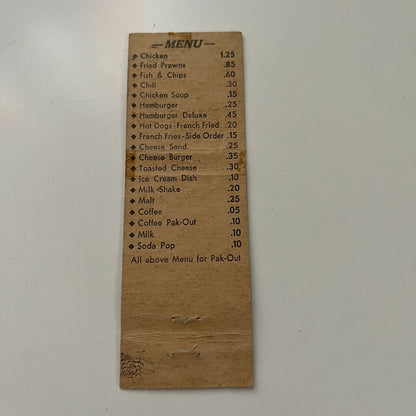 MENU
Chicken 1.25
Fried Prawns .85
Fish & Chips .60
Chili .30
Chicken Soup .15
Hamburger .25
Hamburger Deluxe .45
Hot Dogs-French Fried .20
French Fries-Side Order .15
Cheese Sand. .25
Cheese Burger .35
Toasted Cheese .30
Ice Cream Dish .10
Milk Shake .20
Malt .25
Coffee .05
Coffee Pak-Out .10
Milk .10
Soda Pop .10
All above Menu for Pak-Out